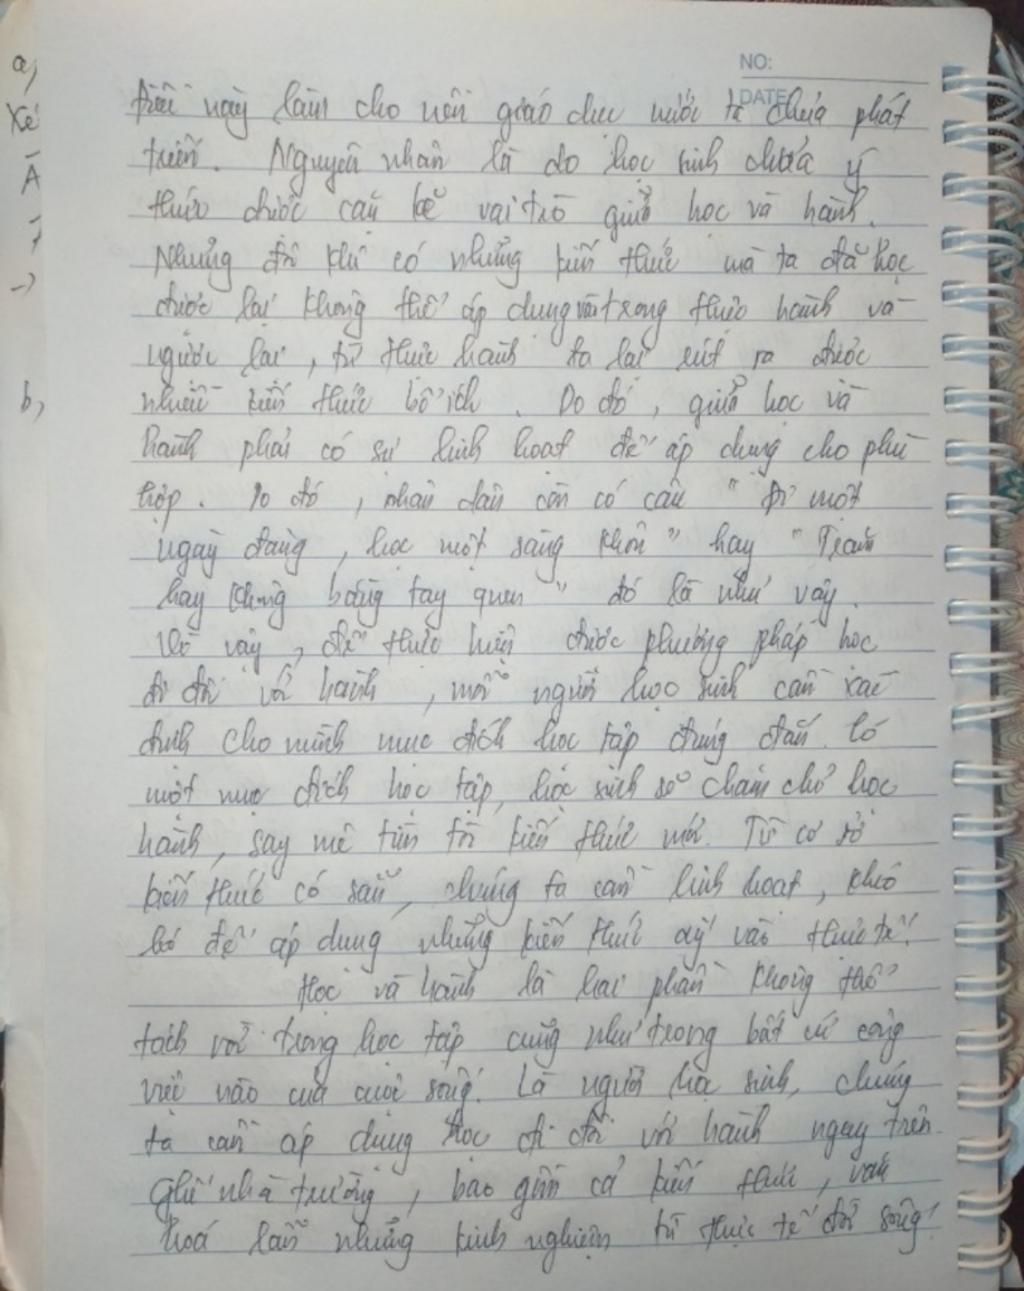 NO:
DATE
a,
Xé
A
b,
Điều này làm cho nền giáo dục nước ta chưa phát
triển. Nguyên nhân là do học sinh chưa ý
thức được cặn kẽ vai trò giữa học và hành.
Nhưng đôi khi có những kiến thức mà ta đã học
được lại không thể áp dụng vào trong thực hành và
ngược lại, từ thực hành ta lại rút ra được
nhiều kiến thức bổ ích. Do đó, giữa học và
hành phải có sự linh hoạt để áp dụng cho phù
hợp. Do đó, nhân dân còn có câu "Đi một
ngày đàng, học một sàng khôn" hay "Trăm
hay không bằng tay quen" đó là như vậy.
Vì vậy, để thực hiện được phương pháp học
đi đôi với hành, mỗi người học sinh cần xác
định cho mình mục đích học tập đúng đắn. Có
một mục đích học tập, học sinh sẽ chăm chỉ học
hành, say mê tìm tòi kiến thức mới. Từ cơ sở
kiến thức có sẵn, chúng ta cần linh hoạt, khéo
léo để áp dụng những kiến thức ấy vào thực tế.
Học và hành là hai phần không thể
tách rời trong học tập cũng như trong bất cứ công
việc nào của cuộc sống. Là người học sinh, chúng
ta cần áp dụng học đi đôi với hành ngay trên
ghế nhà trường, bao gồm cả kiến thức, văn
hoá lẫn những kinh nghiệm từ thực tế đời sống.